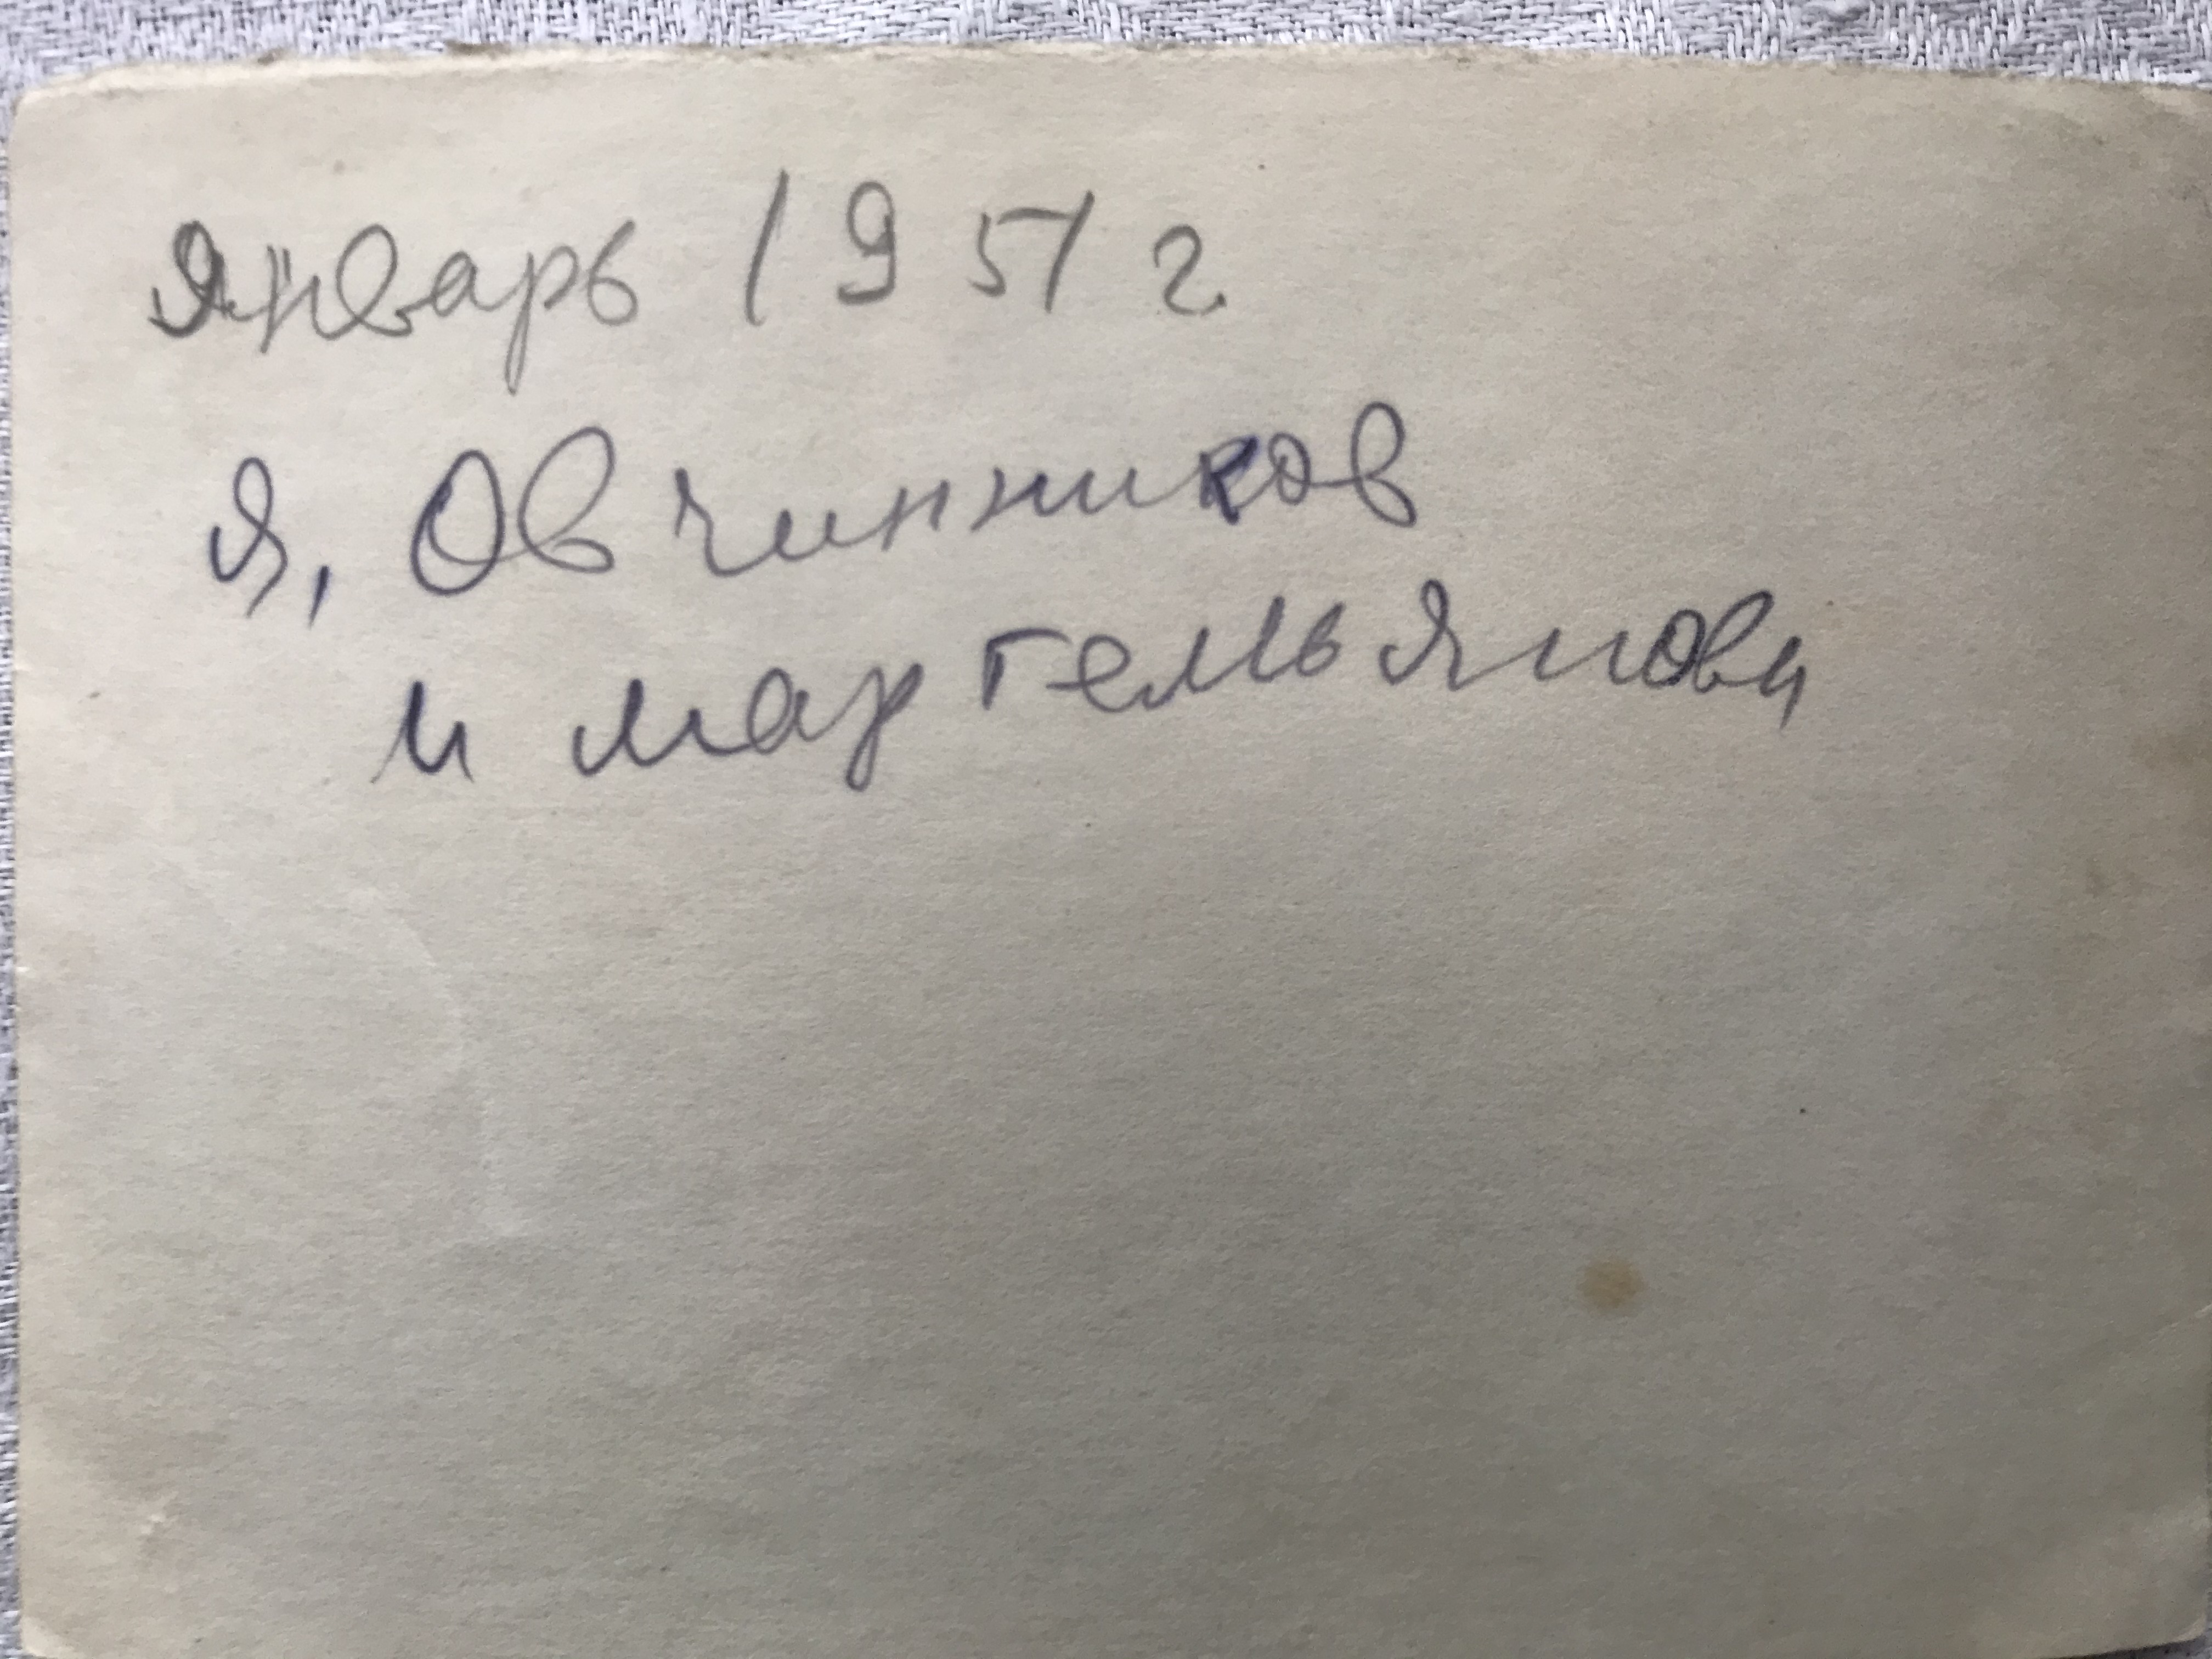 Январь 1951 г.
Я, Овчинников
и мартемьянова